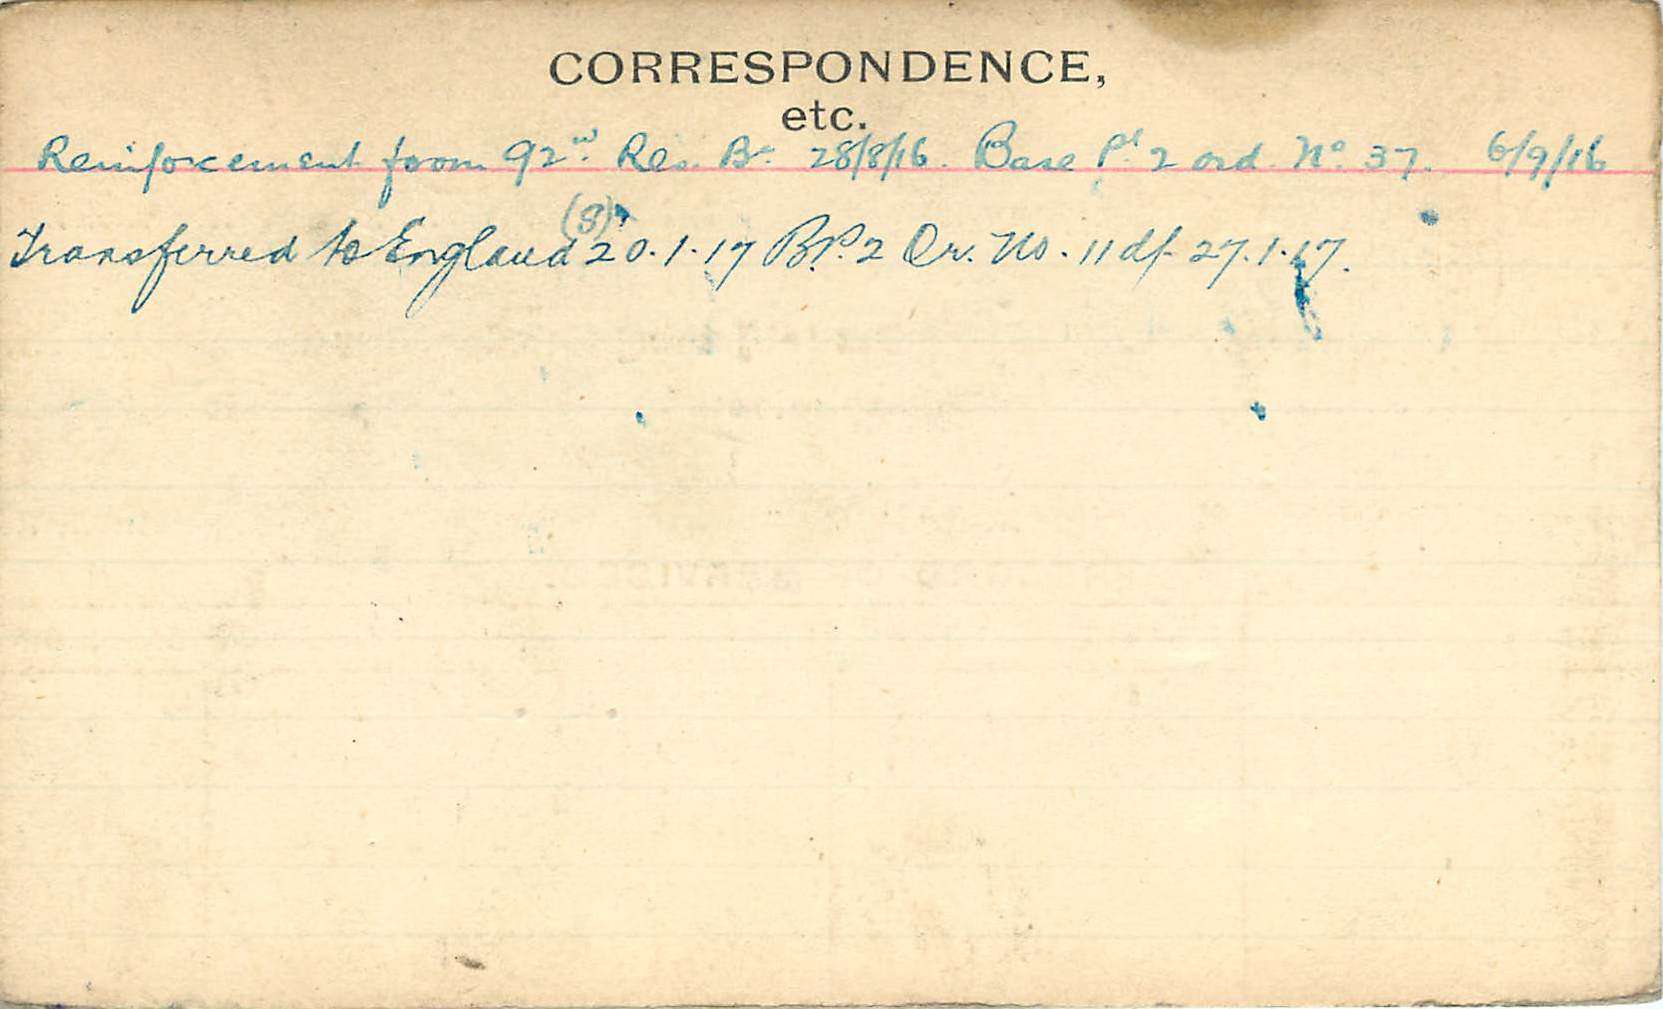 CORRESPONDENCE,
etc.
Reinforcement from 92nd Res. Bn 28/8/16. Base Pt 2 ord. No 37. 6/9/16
(S)
Transferred to England 20.1.17 B.P.2 Or. No. 11 df. 27.1.17.